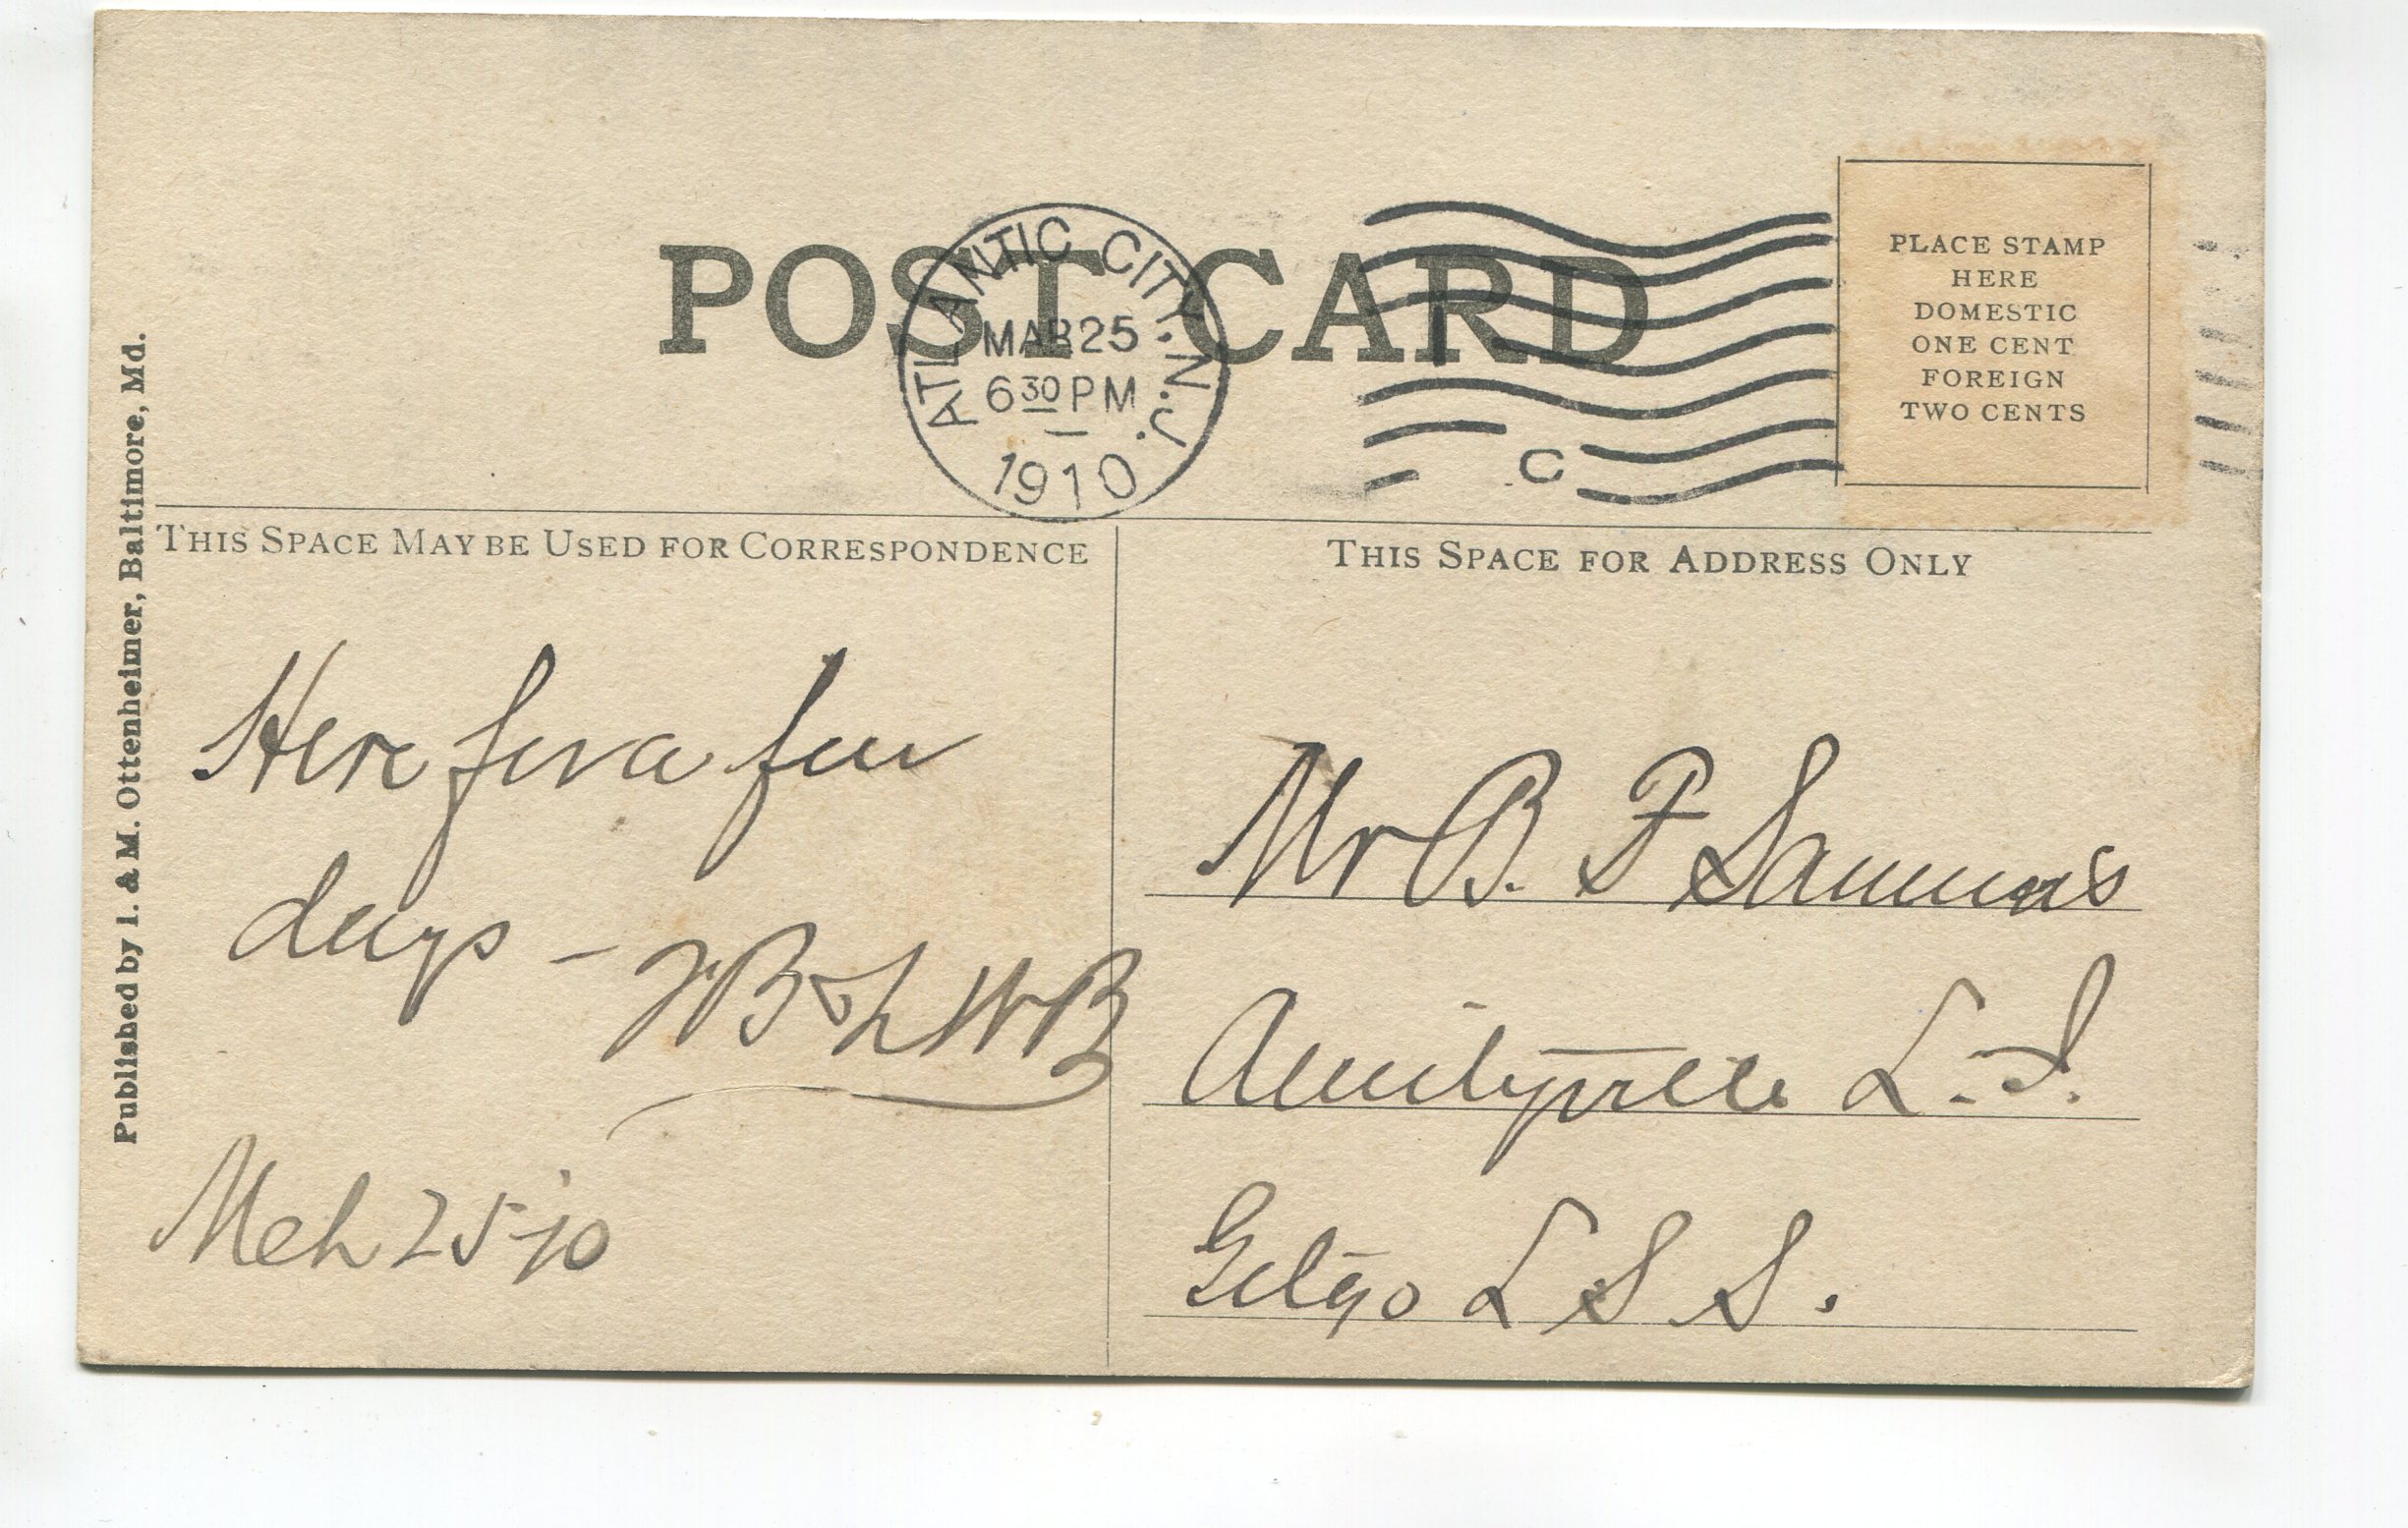 POST CARD
ATLANTIC CITY, N.J.
MAR 25
6 30 PM
1910
C
PLACE STAMP
HERE
DOMESTIC
ONE CENT
FOREIGN
TWO CENTS
Published by I. & M. Ottenheimer, Baltimore, Md.
THIS SPACE MAY BE USED FOR CORRESPONDENCE
Here for a few
days –
Mch 25-10
THIS SPACE FOR ADDRESS ONLY
Mr B. F Sammis
Amityville L.I.
Gilgo L S S.